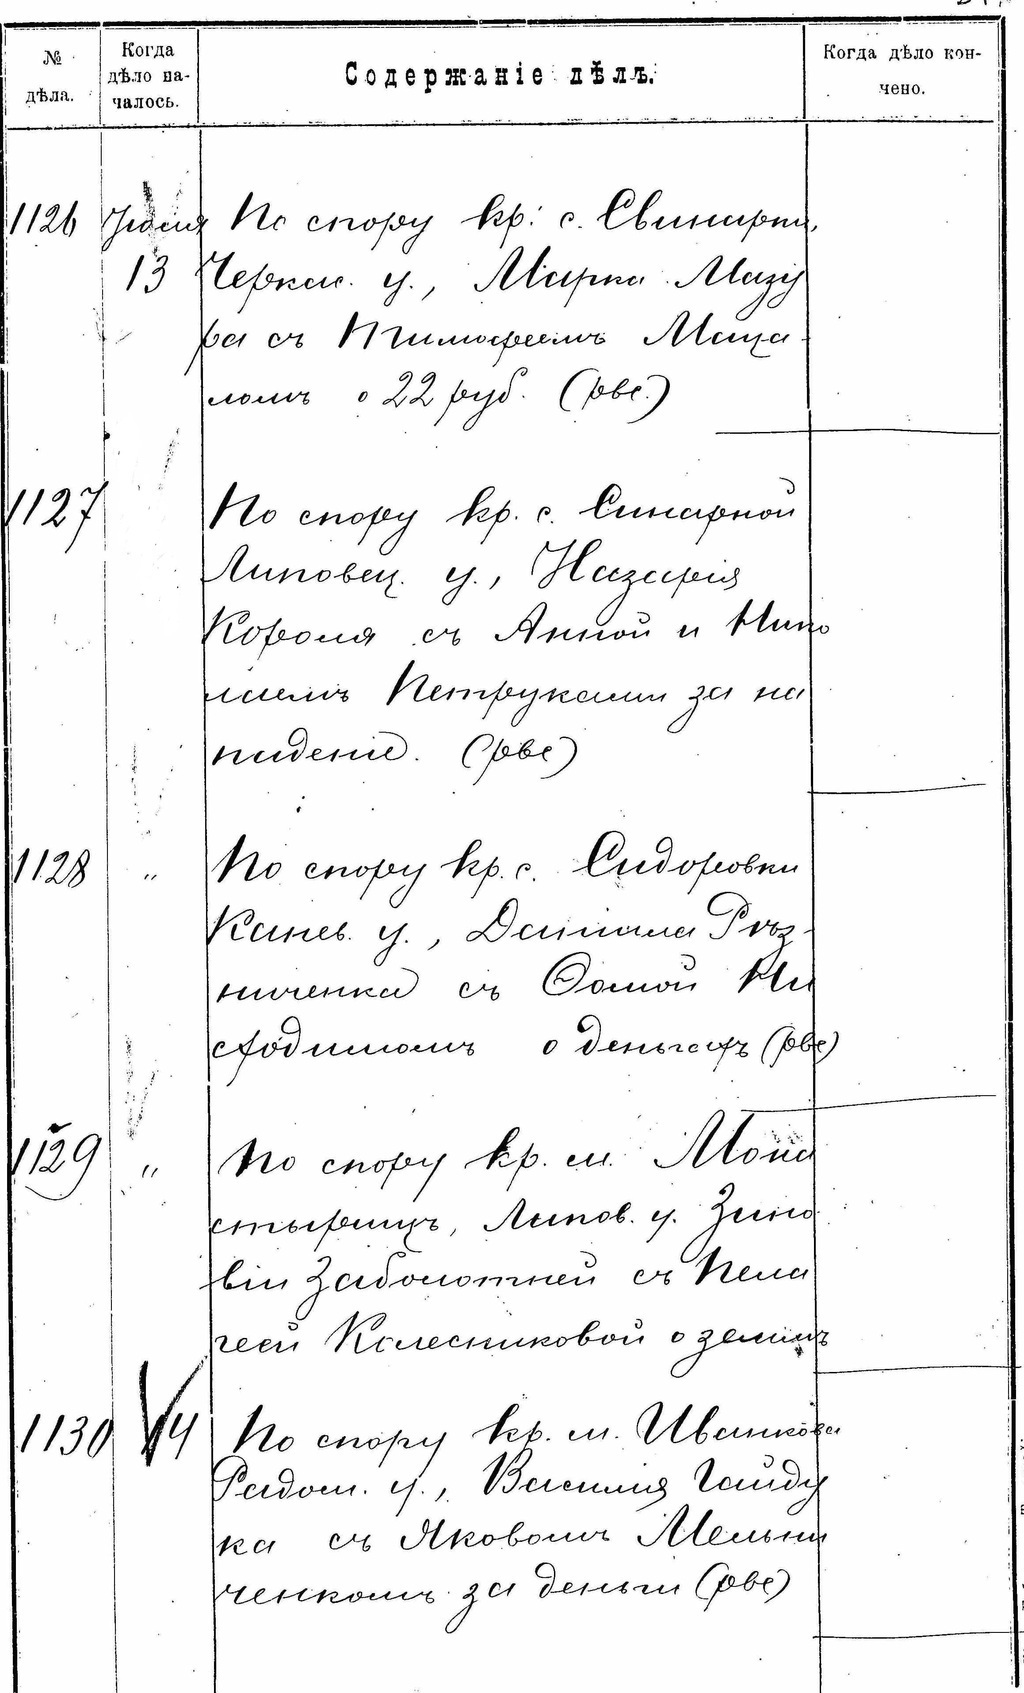 № дѣла.
Когда дѣло на-
чалось.
Содержаніе дѣлъ.
Когда дѣло кон-
чено.
1126 Іюля 13 По спору кр. с. Свинарки,
Черкас. у., Марка Мазу
ра съ Тимофеемъ Маца-
помъ о 22 руб. (рвс.)
1127 По спору кр. с. Синарной
Липовец. у., Назарія
Короля съ Анной и Нико
лаемъ Петруками за на
паденіе. (рвс)
1128 „ По спору кр. с. Сидоровки
Канев. у., Даніила Рѣз-
ниченка съ Ѳомой
о деньгахъ (рвс)
1129 „ По спору кр. м. Мона
стырищъ, Липов. у. Зино
віи Заболотней съ Пела
геей Колесниковой о землѣ
1130 14 По спору кр. м. Иванкова
Радом. у., Василія Гайду
ка съ Яковомъ Мельни
ченкомъ за деньги (рвс)